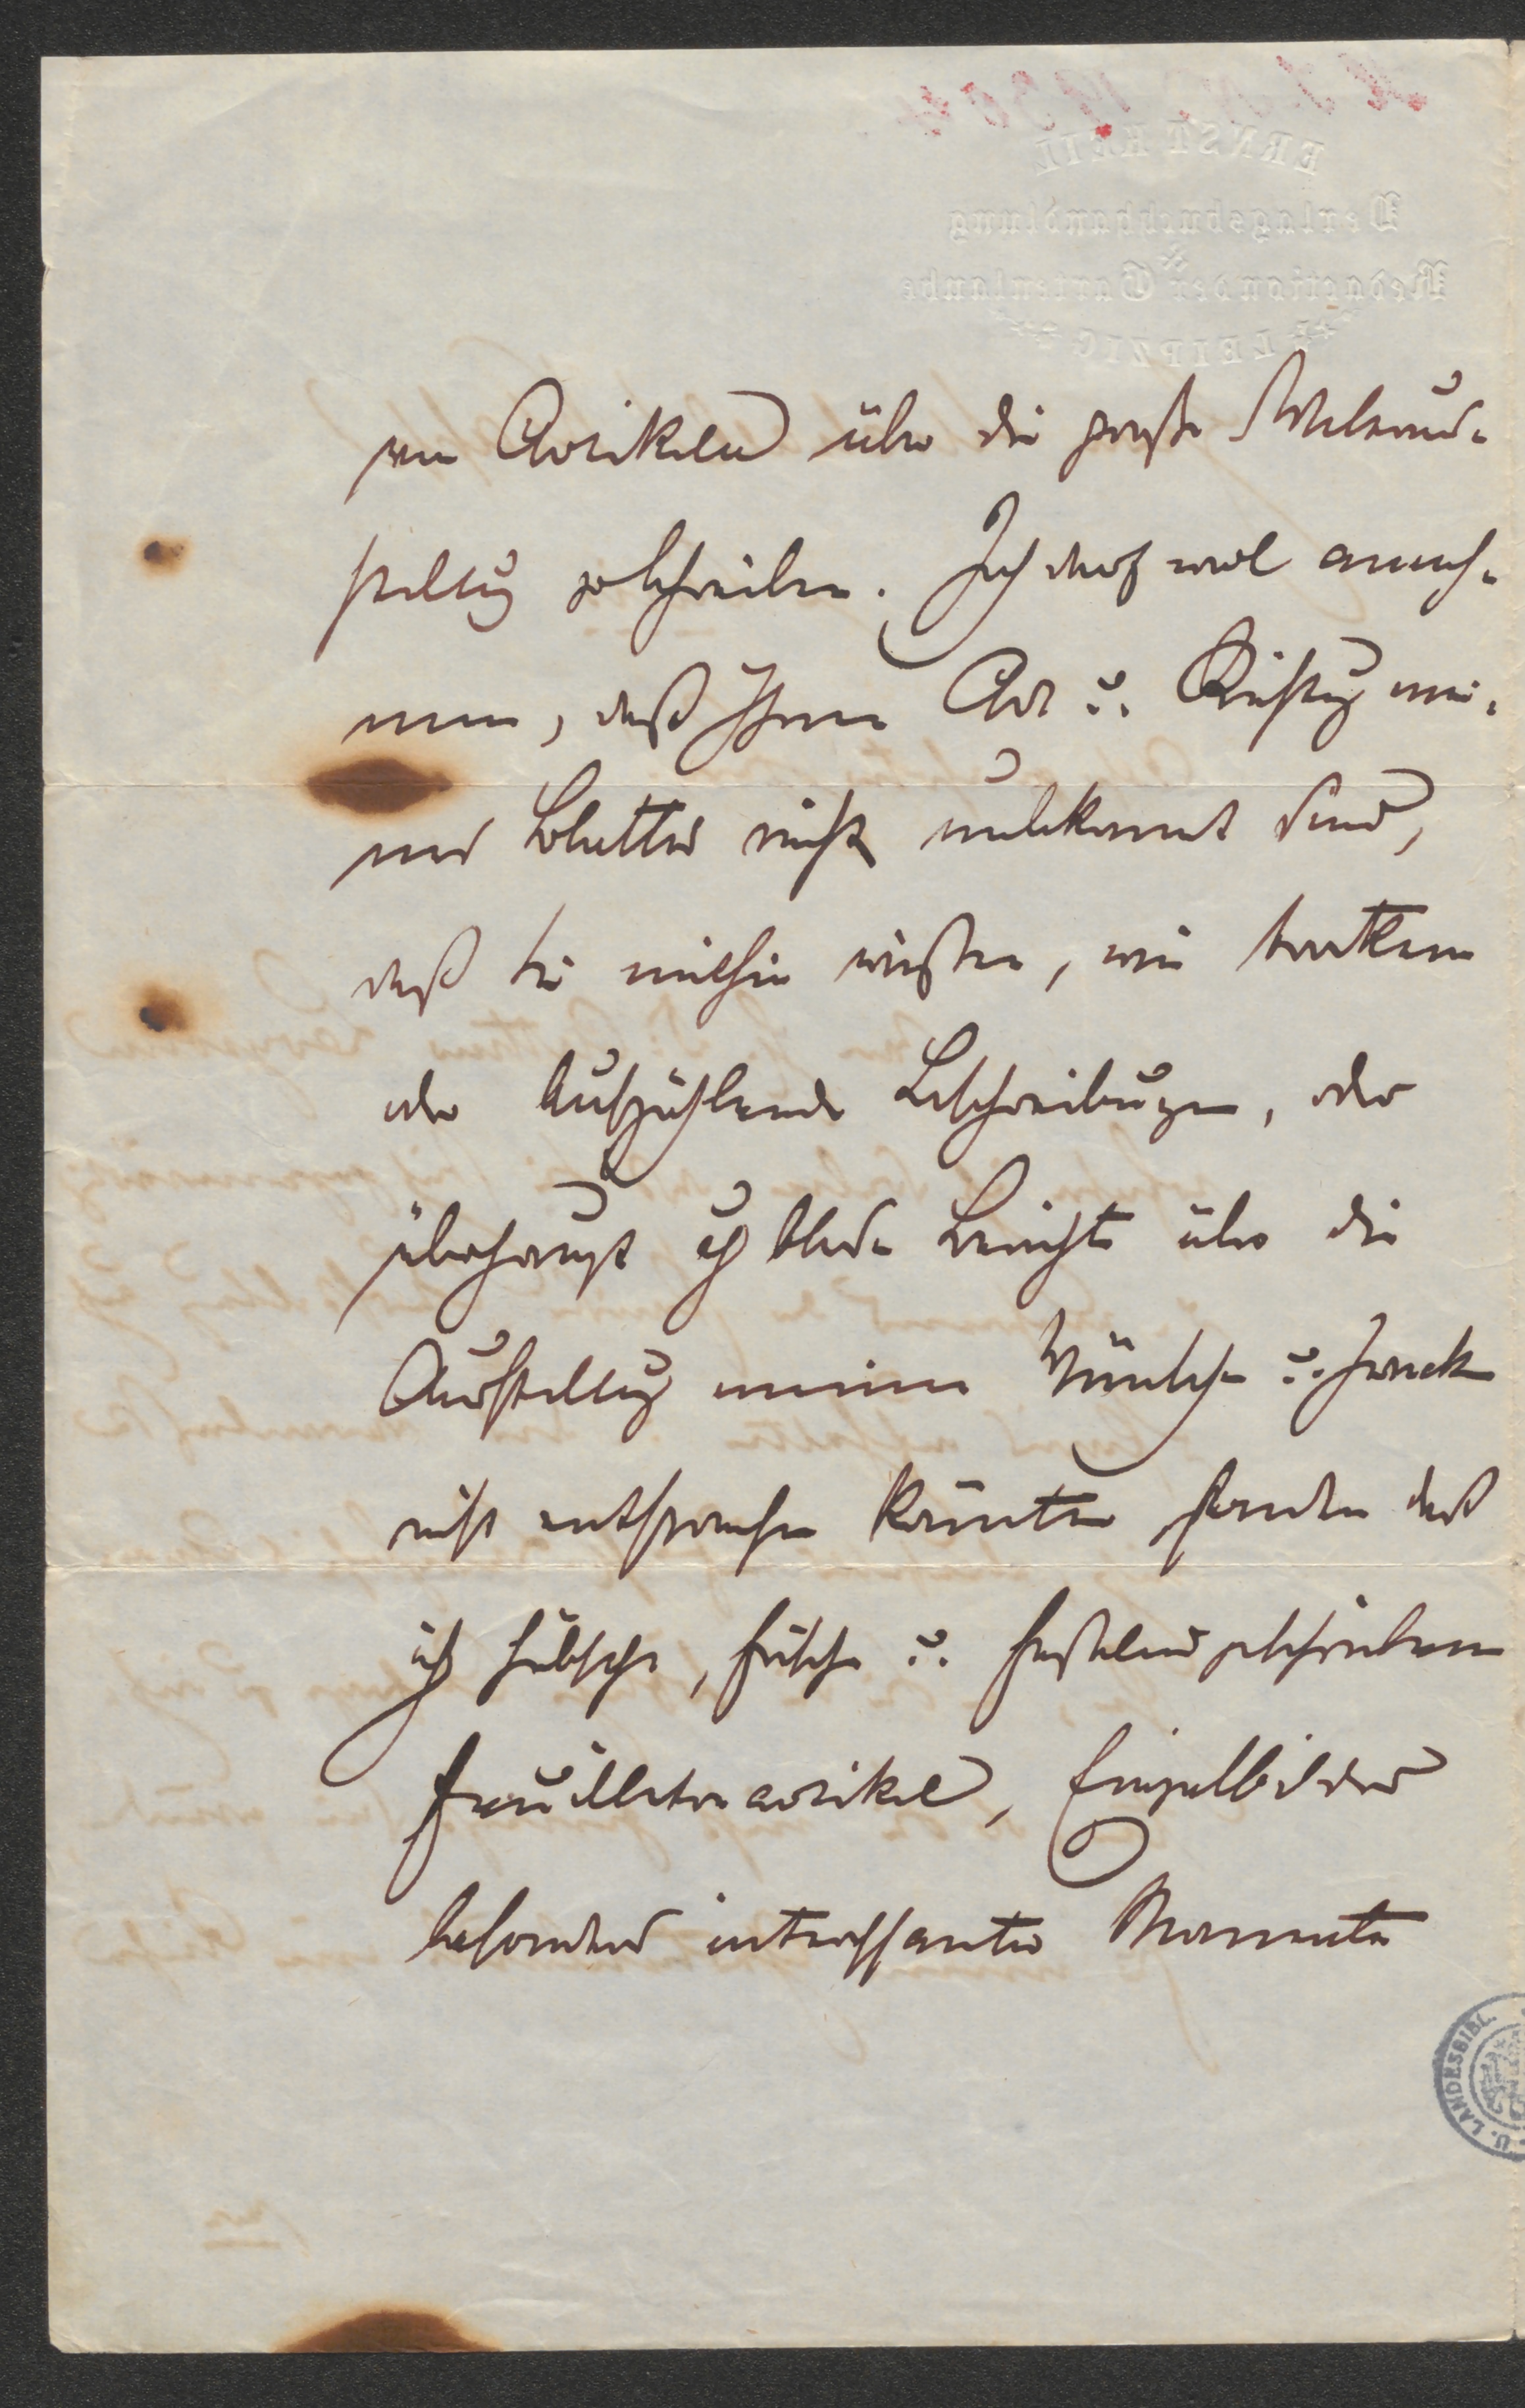 ren Artikeln über die große Weltaus-
stellung zu schreiben. Ich darf wol anneh-
men, daß Ihnen Art u. Richtung mei-
nes Blattes nicht unbekannt sind,
daß Sie mithin wissen, wie trockene
oder aufzählende Beschreibungen, oder
überhaupt bloße Berichte über die
Ausstellung meinen Wünschen u. Zwecken
nicht entsprechen könnten sondern daß
ich hübsche, frische u. fesselnd geschriebene
Feuilletonartikel, Einzelbilder
besonders interessanter Momente
ERNST KEIL
Verlagsbuchhandlung
Redaction der Gartenlaube
LEIPZIG
U. LANDESBIBL.